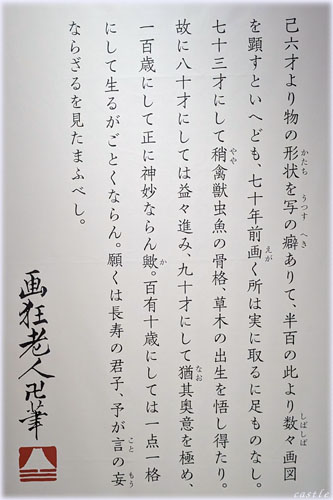 己六才より物の形状を写の癖ありて、半百の此より数々画図
を顕すといへども、七十年前画く所は実に取るに足ものなし。
七十三才にして稍禽獣虫魚の骨格、草木の出生を悟し得たり。
故に八十才にしては益々進み、九十才にして猶其奥意を極め、
一百歳にして正に神妙ならん歟。百有十歳にしては一点一格
にして生るがごとくならん。願くは長寿の君子、予が言の妄
ならざるを見たまふべし。
画狂老人卍筆
castle